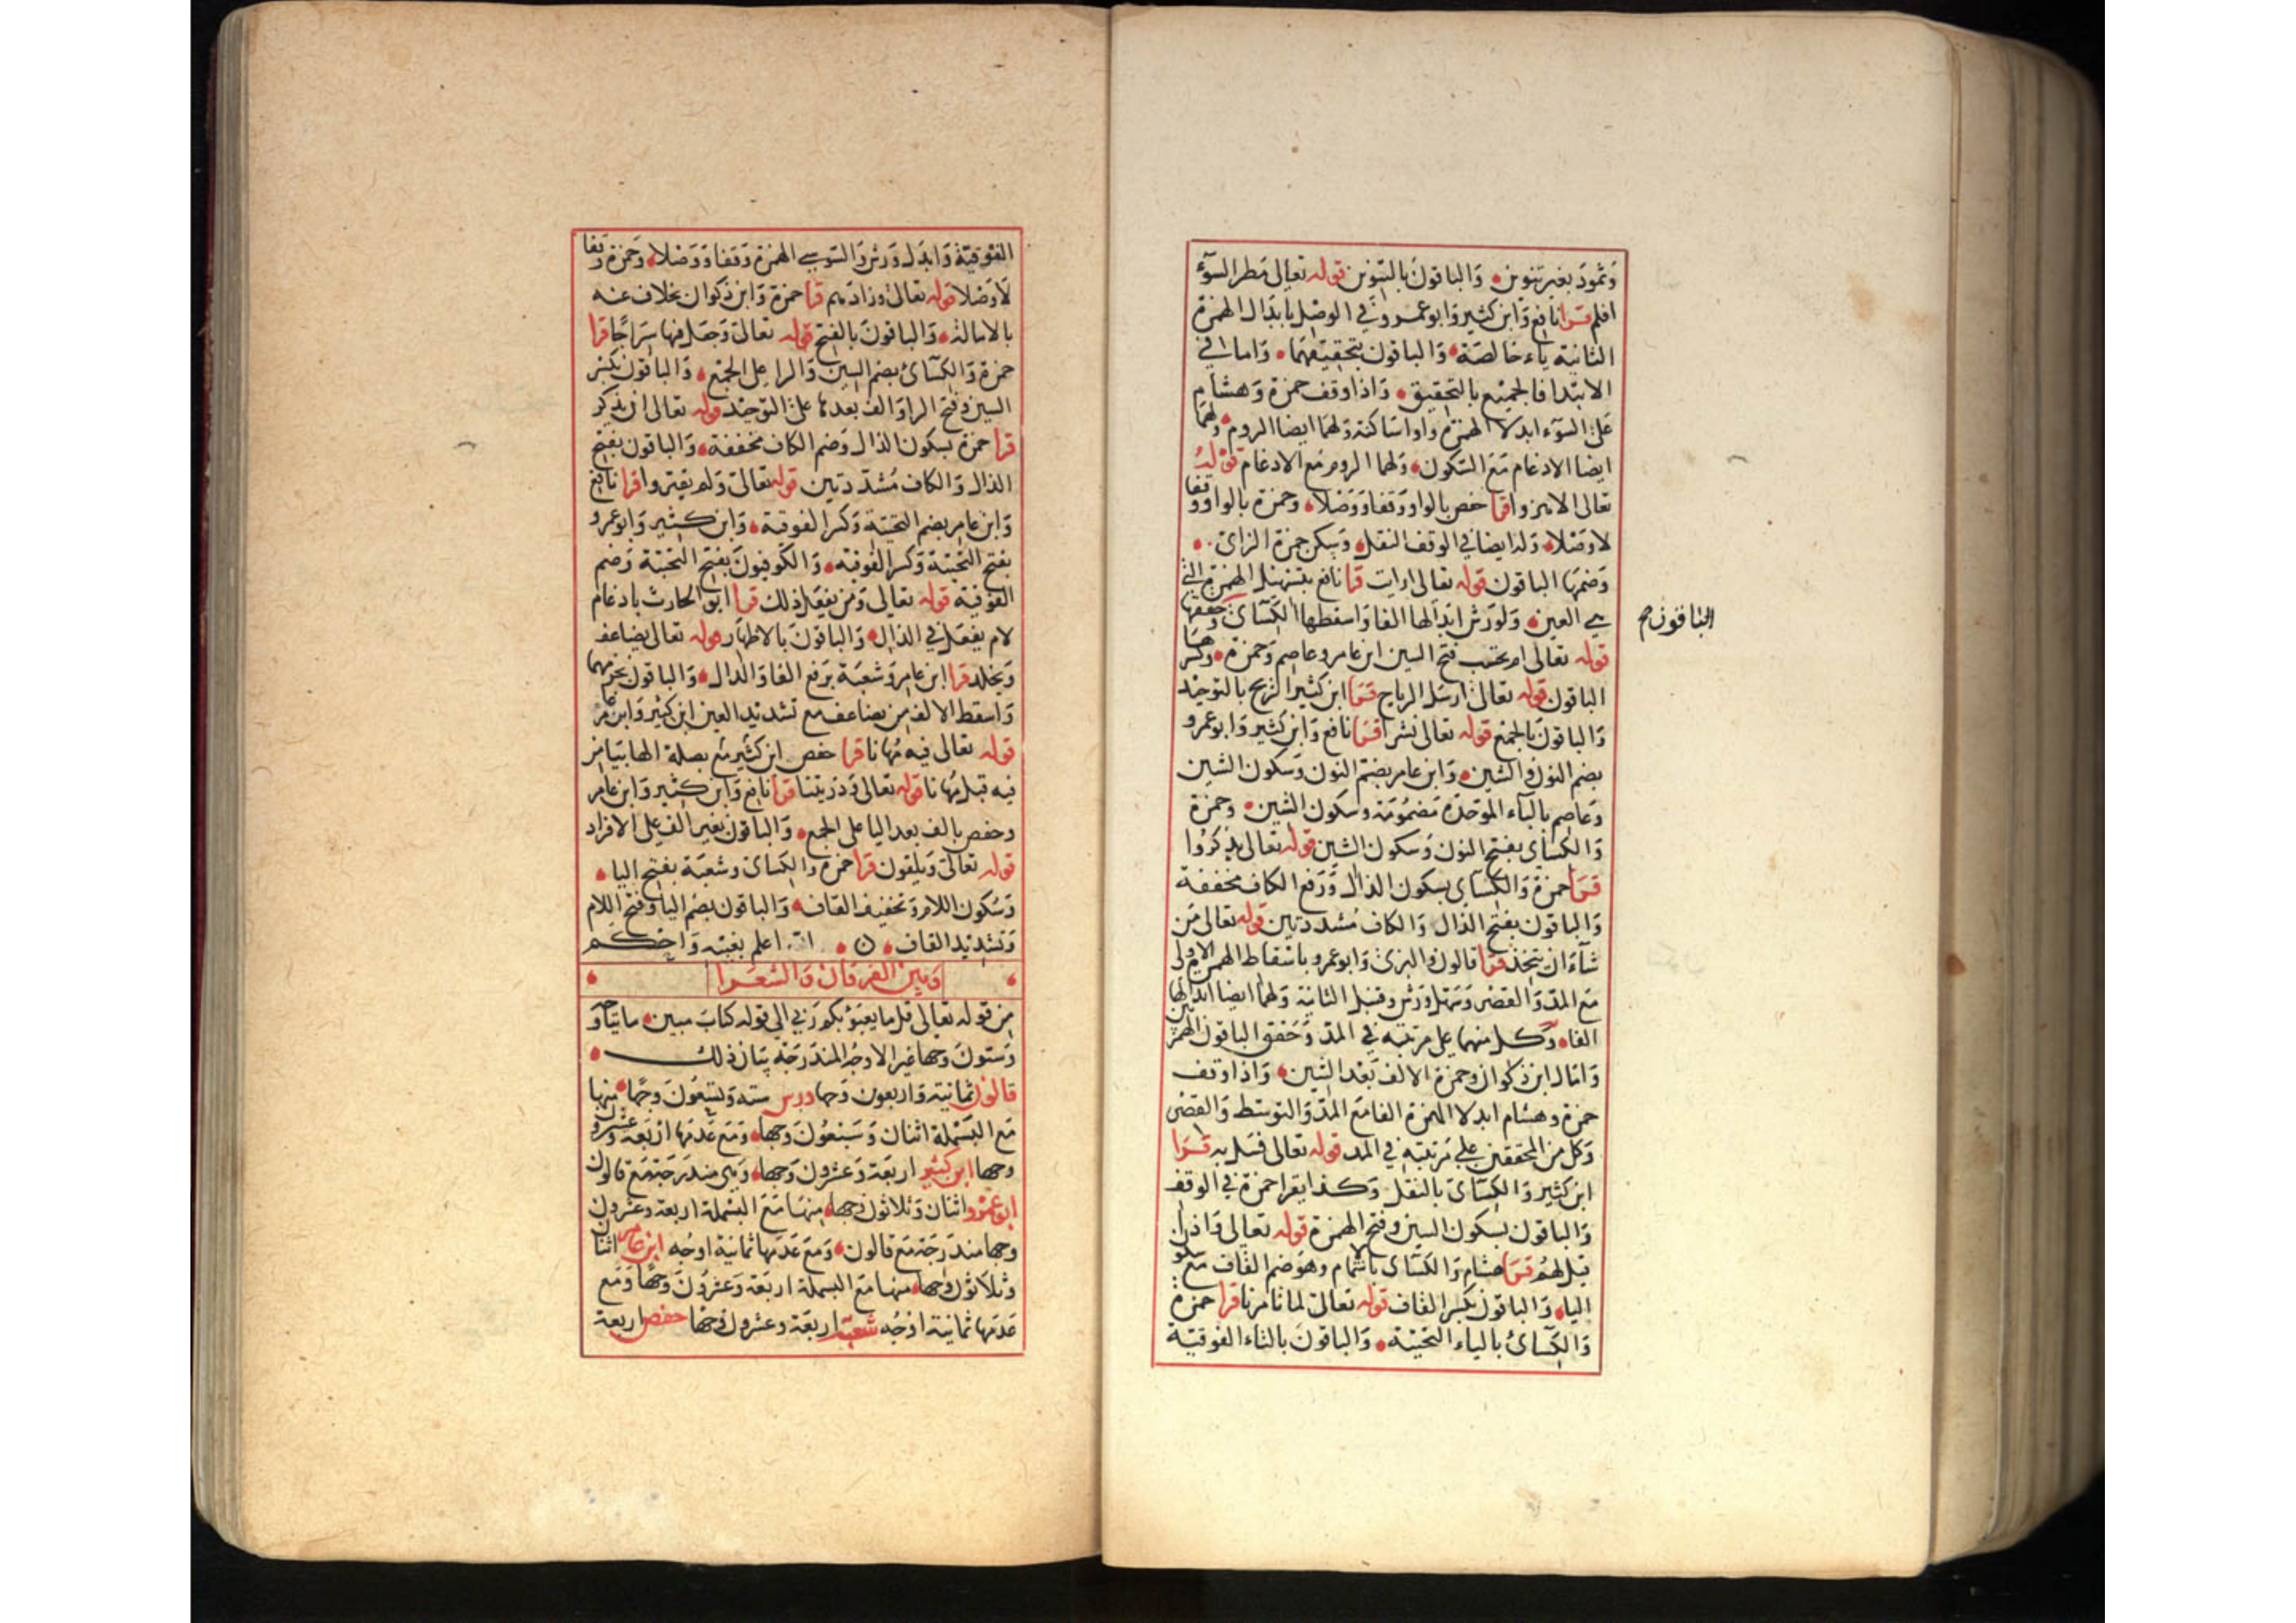 وَثمودَ بغير تنوين وَالباقونَ بالتنوين قوله تعالى مَطر السَّوْءِ
افلم قرا نافع وَابن كثير وَابو عمرو في الوصْل بابدَال الهمزة
الثانية ياء خالصَة وَالباقون بتحقيقهمَا وَاما في
الابتدا فالجميْع بالتحقيق وَاذا وَقف حمزة وَهشام
عَلى السوْء ابدلا الهمزة واوا سَاكنة وَلهمَا ايضا الروم وَلهمَا
ايضا الادغام مَعَ السّكون وَلهما الروم مَع الادغام قوْلهُ
تعالى الا هزوا قرا حفص بالواو وَقفا وَوَصْلا وحمزة بالواو وقفا
لاوصْلا وَله ايضا في الوقف النقل وَسكن حمزة الزاى
وَضمّهَا الباقون قوله تعالى ارايت قرا نافع بتسْهيل الهمزة التي
هي العين وَلوَرْش ابدَالها الفا وَاسقطها الكسَآى وَحققها
الباقون صح
قوله تعالى ام تحسَب فتح السين ابن عامر وعاصم وَحمزة وكسرهَا
الباقون قوله تعالى ارسَل الرياح قرَا ابن كثير الريح بالتوحيْد
وَالباقون بالجمْع قوله تعالى نشرا قرَا نافع وَابن كثير وَابو عمرو
بضم النون وَالشين وَابن عامر بضم النون وَسكون الشين
وَعاصم بالبآء الموَحدة مَضمُومَة وسكون الشين وحمزة
وَالكسَآى بفتح النون وَسكون الشين قوله تعالى ليذكرُوا
قرَا حمزة وَالكسَآى بسكون الذال وَرَفع الكاف مخففة
وَالباقون بفتح الذال وَالكاف مُشدّدتين قوله تعالى مَن
شآءَ ان يتخذ قرَا قالون وَالبزى وَابو عمرو باسْقاط الهمزة الاولى
مَعَ المدّ وَالقصْر وَسَهل وَرْش وقنبل الثانية وَلهمَا ايضا ابدَالها
الفا وَكل منهما على مرتبته في المدّ وَحَقق الباقون الهمزتين
وَامَال ابن ذكوان وحمزة الالف بَعْد الشين وَاذا وَقف
حمزة وهشام ابدلا الهمزة الفا مَع المدّ وَالتوسّط وَالقصْر
وَكل من المحققين على مَرتبته في المد قوله تعالى فسَل به قرَا
ابن كثير وَالكسَآى بالنقل وَكذا يقرا حمزة في الوقف
وَالباقون بسكون السين وفتح الهمزة قوله تعالى وَاذا
قيل لهمُ قرَا هشام وَالكسَآى باشمام وهوَ ضم القاف مَع
اليا وَالباقون بكسر القاف قوله تعالى لما تامرنا قرا حمزة
وَالكسَآئُ بالياء التحتية وَالباقونَ بالتاء الفوقيّة
الفوْقيّة وَابدَل وَرش وَالسّوسي الهمزة وَقفا وَوَصْلا وَحمزة وَقفا
لاوَصْلا قوله تعالى وزادَهم قرا حمزة وَابن ذكوان بخلاف عنه
بالامالة وَالباقونَ بالفتح قوله تعالى وَجعَل فيها سرَاجًا قرا
حمزة وَالكسَآئ بضم السين وَالرا على الجمْع وَالباقون بكسْر
السين وفتح الرا وَالف بعدها على التوحيْد قوله تعالى ان يذكر
قرا حمزة بسكون الذال وَضم الكاف مخففة وَالباقون بفتح
الذال وَالكاف مُشدّدتين قوله تعالى وَلم يقتروا قرا نافع
وَابن عامر بضم التحتية وَكسر الفوقية وَابن كثير وَابو عمرو
بفتح التحتية وَكسر الفوقية وَالكوفيونَ بفتح التحتية وَضم
الفوقية قوله تعالى وَمن يفعَل ذلك قرا ابو الحارث بادغام
لام يفعَل في الذال وَالباقونَ بالاظهَار قوله تعالى يضاعف
وَيخلد قرا ابن عامر وَشعبَة برَفع الفا وَالدال وَالباقون بجزمهما
وَاسقط الالف من يضاعف مع تشديد العين ابن كثير وَابن عامر
قوله تعالى فيه مُهانا قرا حفص ابن كثير مَع بصلة الها بيَا من
فيه قبل مُهانا قوله تعالى وَذريتنا قرا نافع وَابن كثير وَابن عامر
وحفص بالف بعد اليا على الجمع وَالباقون بغير الف على الافراد
قوله تعالى وَيلقون قرا حمزة وَالكسَاى وشعبَة بفتح اليا
وَسُكون اللام وَتخفيف القاف وَالباقون بضم اليا وَفتح اللام
وَتشديد القاف ن الله اعلم بغيبه وَاحكم
وَبين الفرقان وَالشعرا
من قوله تعالى قل مَا يعبؤ بكم رَبي الى قوله كتابَ مبين مايتا وجه
وَستونَ وَجها غير الاوجُه المندَرجَة بيَان ذلك
قالون ثمانية وَاربعون وَجها ورش ستة وَتسعُونَ وَجهًا منها
مَع البسْملة اثنان وَسَبْعُونَ وَجها وَمَع عَدمها ارْبَعة وَعشرون
وجها ابن كثير اربعَة وَعشرون وَجها وَهى مندَرجَة مَع قالون
ابو عمْرو اثنان وَثلاثون وَجها منهَا مَعَ البسْملة اربعة وعشرون
وجها مندَرجَة مَع قالون وَمَع عَدَمها ثمانية اوجُه ابن عامر اثنان
وثلاثون وَجها منها مَعَ البسملة اربعَة وَعشرُونَ وَجهًا وَمَع
عَدَمها ثمانية اوْجُه شعبة اربعَة وعشرون وَجهًا حفص اربعة